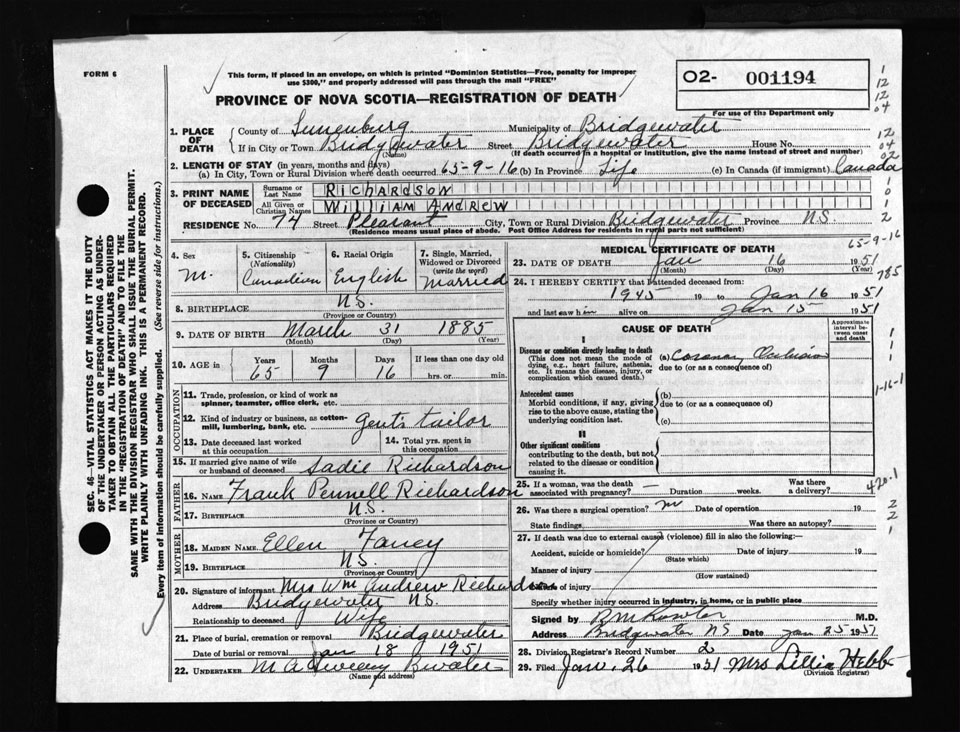 FORM 6
This form, if placed in an envelope, on which is printed "Dominion Statistics—Free, penalty for improper
use $300," and properly addressed will pass through the mail "FREE"
O2- 001194
For use of the Department only
PROVINCE OF NOVA SCOTIA—REGISTRATION OF DEATH
1. PLACE OF DEATH County of Lunenburg Municipality of Bridgewater
If in City or Town Bridgewater Street Bridgewater House No.
(Name) (If death occurred in a hospital or institution, give name instead of street and number)
2. LENGTH OF STAY (in years, months and days)
(a) In City, Town or Rural Division where death occurred 65-9-16 (b) In Province Life (c) In Canada (if immigrant) Canada
3. PRINT NAME OF DECEASED Surname or Last Name RICHARDSON
All Given or Christian Names WILLIAM ANDREW
RESIDENCE No. 77 Street Pleasant City, Town or Rural Division Bridgewater Province N.S.
(Residence means usual place of abode. Post Office Address for residents in rural parts not sufficient)
4. Sex M.
5. Citizenship (Nationality) Canadian
6. Racial Origin English
7. Single, Married, Widowed or Divorced (write the word) Married
8. BIRTHPLACE N.S.
(Province or Country)
9. DATE OF BIRTH March 31 1885
(Month) (Day) (Year)
10. AGE Years 65 Months 9 Days 16 If less than one day old hrs. or min.
OCCUPATION
11. Trade, profession, or kind of work as spinner, teamster, office clerk, etc.
12. Kind of industry or business, as cotton-mill, lumbering, bank, etc. gents tailor
13. Date deceased last worked at this occupation
14. Total yrs. spent in this occupation
15. If married give name of wife or husband of deceased Sadie Richardson
FATHER
16. NAME Frank Pennell Richardson
17. BIRTHPLACE N.S.
(Province or Country)
MOTHER
18. MAIDEN NAME Ellen Fancy
19. BIRTHPLACE N.S.
(Province or Country)
20. Signature of informant Mrs Wm Andrew Richardson
Address Bridgewater N.S.
Relationship to deceased Wife
21. Place of burial, cremation or removal Bridgewater
Date of burial or removal Jan 18 1951
22. UNDERTAKER B'water
(Name and address)
MEDICAL CERTIFICATE OF DEATH
23. DATE OF DEATH Jan 16 1951
(Month) (Day) (Year)
24. I HEREBY CERTIFY that I attended deceased from:
1945 19 to Jan 16 1951
and last saw him alive on Jan 15 1951
CAUSE OF DEATH
Approximate interval between onset and death
I
Disease or condition directly leading to death (a) Coronary Occlusion
(This does not mean the mode of dying, e.g., heart failure, asthenia, etc. It means the disease, injury, or complication which caused death.)
due to (or as a consequence of)
Antecedent causes
Morbid conditions, if any, giving rise to the above cause, stating the underlying condition last.
(b)
due to (or as a consequence of)
(c)
II
Other significant conditions
contributing to the death, but not related to the disease or condition causing it.
25. If a woman, was the death associated with pregnancy? — Duration weeks. Was there a delivery?
26. Was there a surgical operation? Date of operation 19
State findings Was there an autopsy?
27. If death was due to external causes (violence) fill in also the following:—
Accident, suicide or homicide? Date of injury 19
(State which)
Manner of injury
(How sustained)
Nature of injury
Specify whether injury occurred in industry, in home, or in public place
Signed by M.D.
Address Bridgewater NS Date Jan 25 1951
28. Division Registrar's Record Number 2
29. Filed Jan. 26 1951 Mrs Lillia Hebb
(Division Registrar)
SEC. 46—VITAL STATISTICS ACT MAKES IT THE DUTY
OF THE UNDERTAKER OR PERSON ACTING AS UNDER-
TAKER TO OBTAIN ALL THE PARTICULARS REQUIRED
IN THE "REGISTRATION OF DEATH" AND TO FILE THE
SAME WITH THE DIVISION REGISTRAR WHO SHALL ISSUE THE BURIAL PERMIT.
WRITE PLAINLY WITH UNFADING INK. THIS IS A PERMANENT RECORD.
Every item of information should be carefully supplied. (See reverse side for instructions.)
1
12
12
04
12
04
02
1
0
1
2
65-9-16
785
1
1
1
1-16-1
420-1
2
2
1